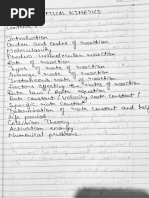 MICAL KINETICS
Content :-
Introduction
Order and order of reaction
Molecularity
Pseudo unimolecular reaction
Rate of reaction
Types of rate of reaction
Average rate of reaction
Instantaneous rate of reaction
Factors affecting the rate of reaction
Rate law / Rate equation
Rate constant / Velocity constant /
Specific rate constant
Determination of rate constant and half
life period
Collision Theory
Activation energy
Numerical problems